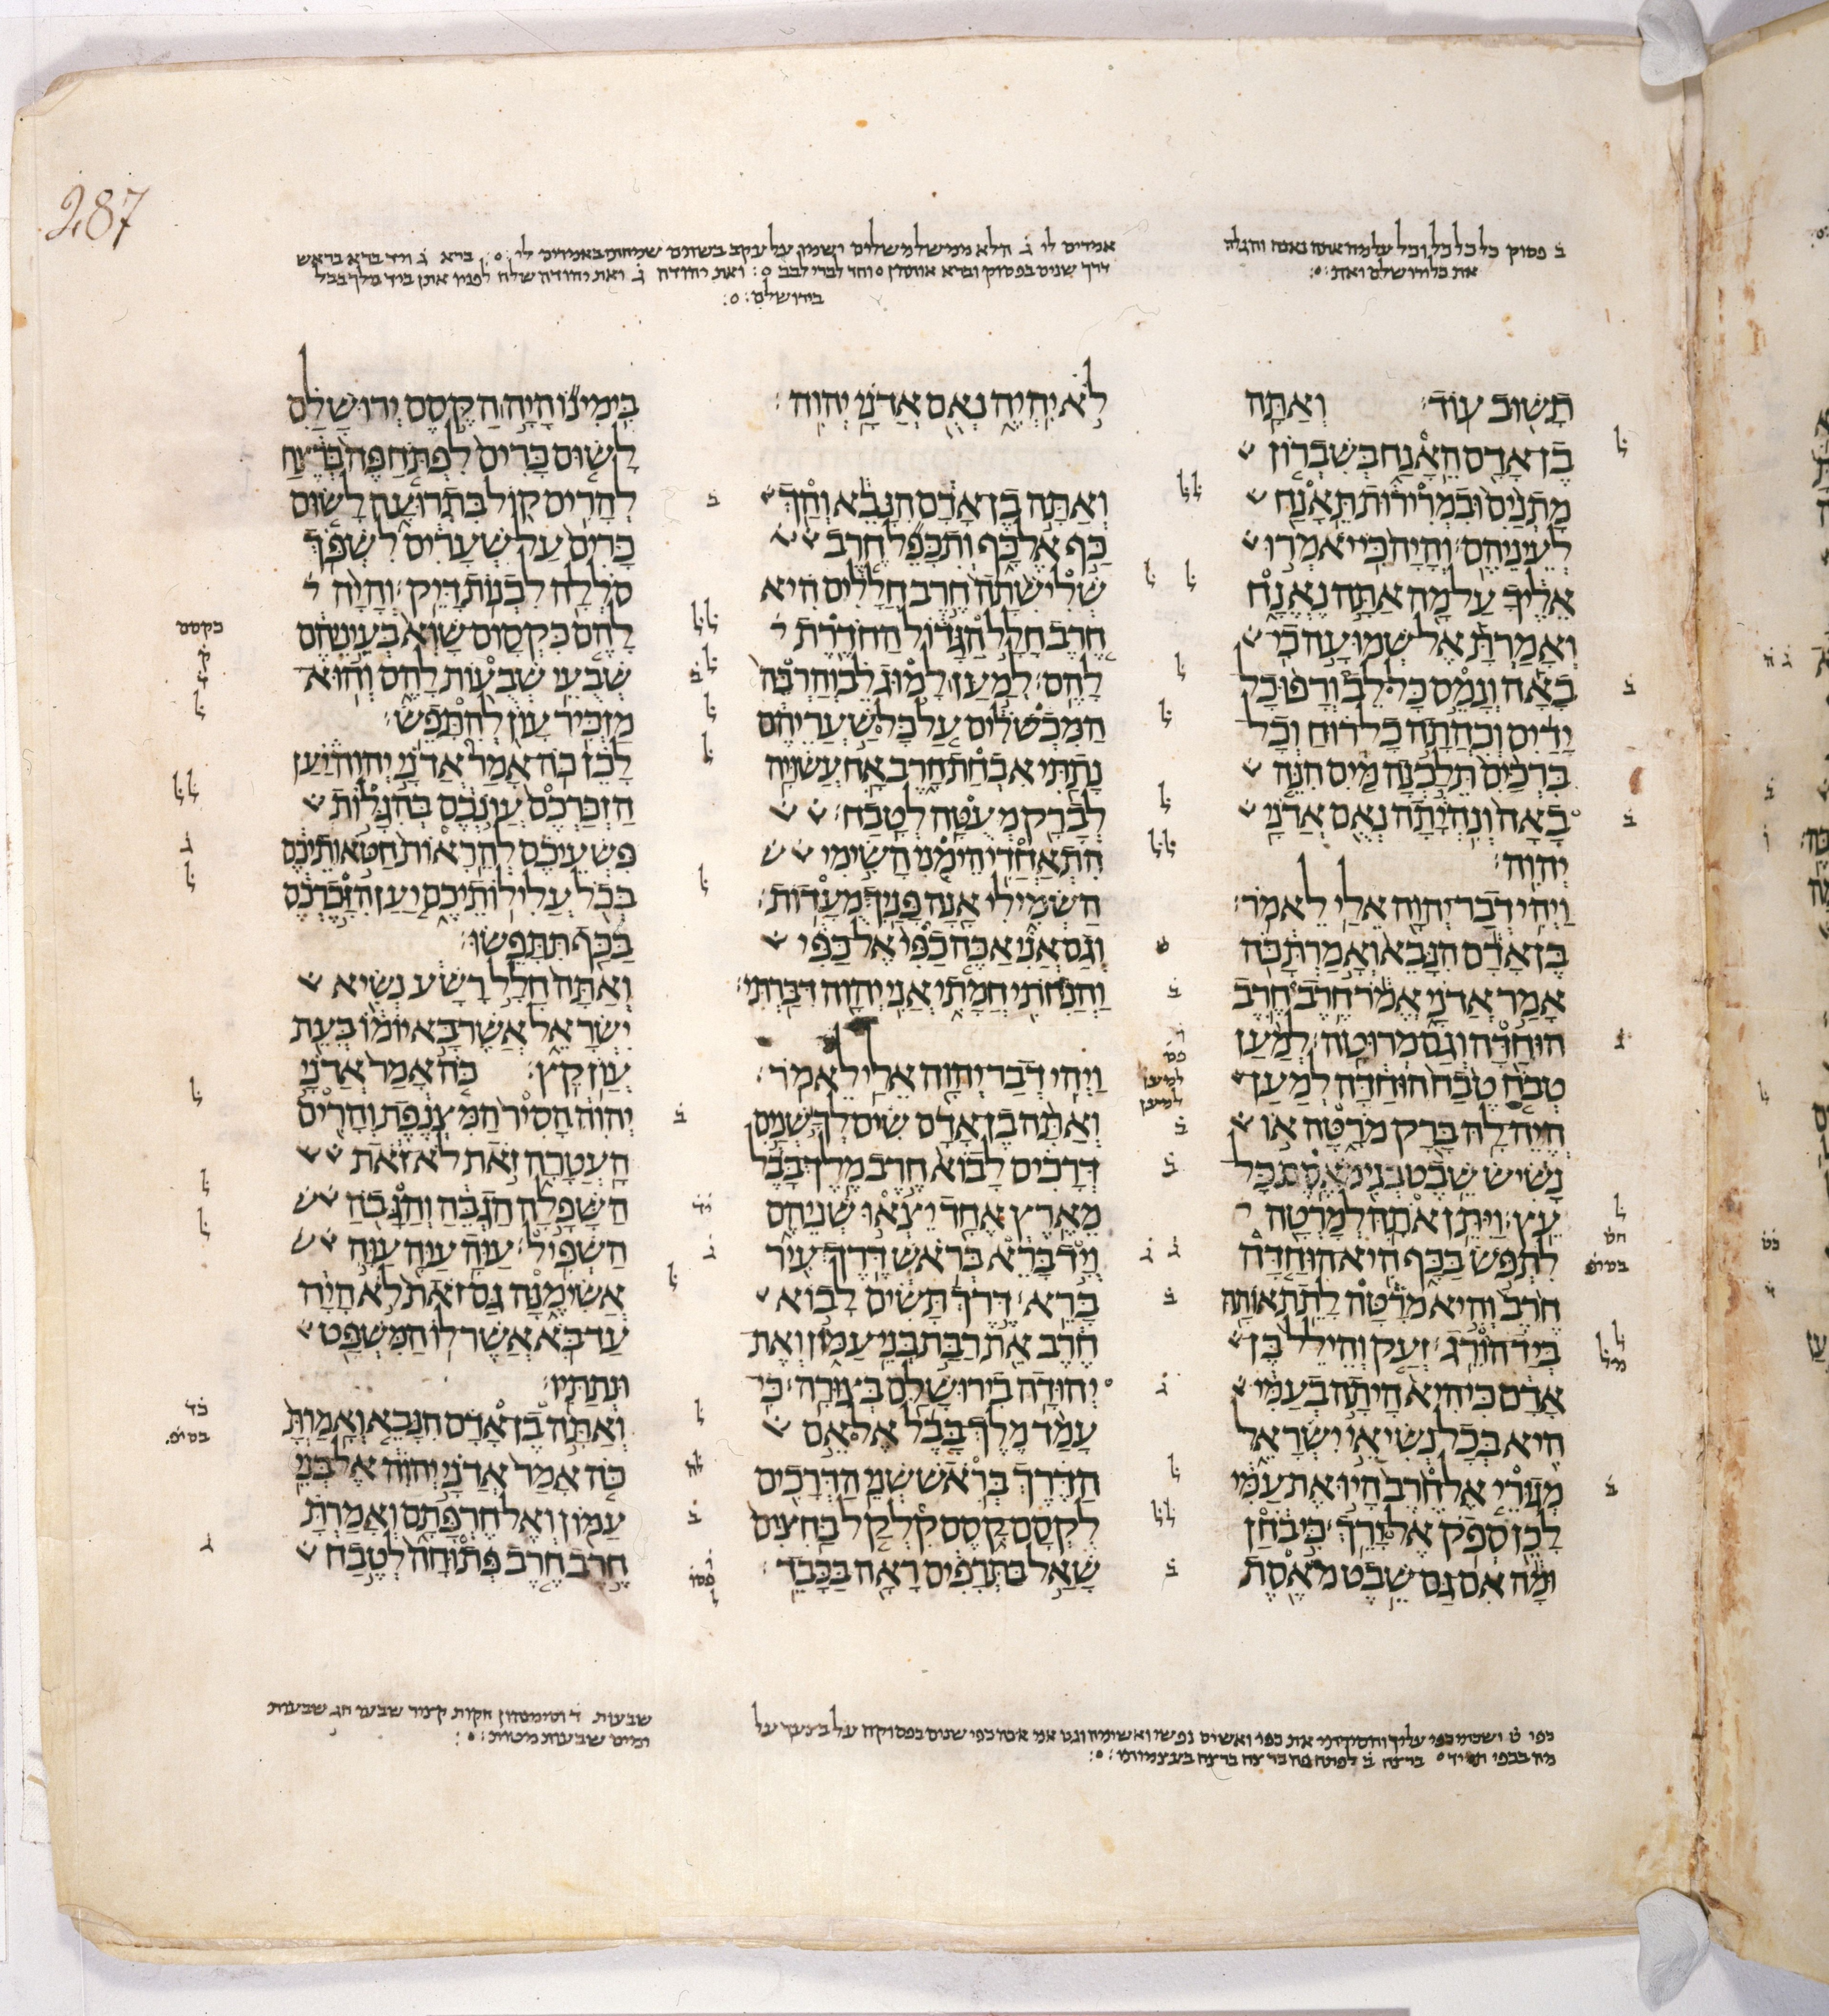 287
ב פסוק כל כל כל וכל על מה אתה נאנח והגלה
את כל ירושלם ואת
אמרים לי ג הלא ממשל משלים
דרך שנים בפסוק וברא
ואת יהודה ג ואת יהודה
בירושלם
תשוב עוד׃ ואתה
בן אדם האנח בשברון
מתנים ובמרירות תאנח
לעיניהם׃ והיה כי יאמרו
אליך על מה אתה נאנח
ואמרת אל שמועה כי
באה ונמס כל לב ורפו כל
ידים וכהתה כל רוח וכל
ברכים תלכנה מים הנה
באה ונהיתה נאם אדני
יהוה׃
ויהי דבר יהוה אלי לאמר׃
בן אדם הנבא ואמרת כה
אמר אדני אמר חרב חרב
הוחדה וגם מרוטה׃ למען
טבח טבח הוחדה למען
היה לה ברק מרטה או
נשיש שבט בני מאסת כל
עץ׃ ויתן אתה למרטה
לתפש בכף היא הוחדה
חרב והיא מרטה לתת אותה
ביד הורג׃ זעק והילל בן
אדם כי היא היתה בעמי
היא בכל נשיאי ישראל
מגורי אל חרב היו את עמי
לכן ספק אל ירך׃ כי בחן
ומה אם גם שבט מאסת
לא יהיה נאם אדני יהוה׃
ואתה בן אדם הנבא והך
כף אל כף ותכפל חרב
שלישתה חרב חללים היא
חרב חלל הגדול החדרת
להם׃ למען למוג לב והרבה
המכשלים על כל שעריהם
נתתי אבחת חרב אח עשויה
לברק מעטה לטבח׃
התאחדי הימני השימי
השמילי אנה פניך מעדות׃
וגם אני אכה כפי אל כפי
והנחתי חמתי אני יהוה דברתי׃
ויהי דבר יהוה אלי לאמר׃
ואתה בן אדם שים לך שנים
דרכים לבוא חרב מלך בבל
מארץ אחד יצאו שניהם
ויד ברא בראש דרך עיר
ברא׃ דרך תשים לבוא
חרב את רבת בני עמון ואת
יהודה בירושלם בצורה׃ כי
עמד מלך בבל אל אם
הדרך בראש שני הדרכים
לקסם קסם קלקל בחצים
שאל בתרפים ראה בכבד׃
בימינו היה הקסם ירושלם
לשום כרים לפתח פה ברצח
להרים קול בתרועה לשום
כרים על שערים לשפך
סללה לבנות דיק׃ והיה
להם כקסום שוא בעיניהם
שבעי שבעות להם והוא
מזכיר עון להתפש׃
לכן כה אמר אדני יהוה יען
הזכרכם עונכם בהגלות
פשעיכם להראות חטאותיכם
בכל עלילותיכם יען הזכרכם
בכף תתפשו׃
ואתה חלל רשע נשיא
ישראל אשר בא יומו בעת
עון קץ׃ כה אמר אדני
יהוה הסיר המצנפת והרים
העטרה זאת לא זאת
השפלה הגבה והגבה
השפיל׃ עוה עוה עוה
אשימנה גם זאת לא היה
עד בא אשר לו המשפט
ונתתיו׃
ואתה בן אדם הנבא ואמרת
כה אמר אדני יהוה אל בני
עמון ואל חרפתם ואמרת
חרב חרב פתוחה לטבח